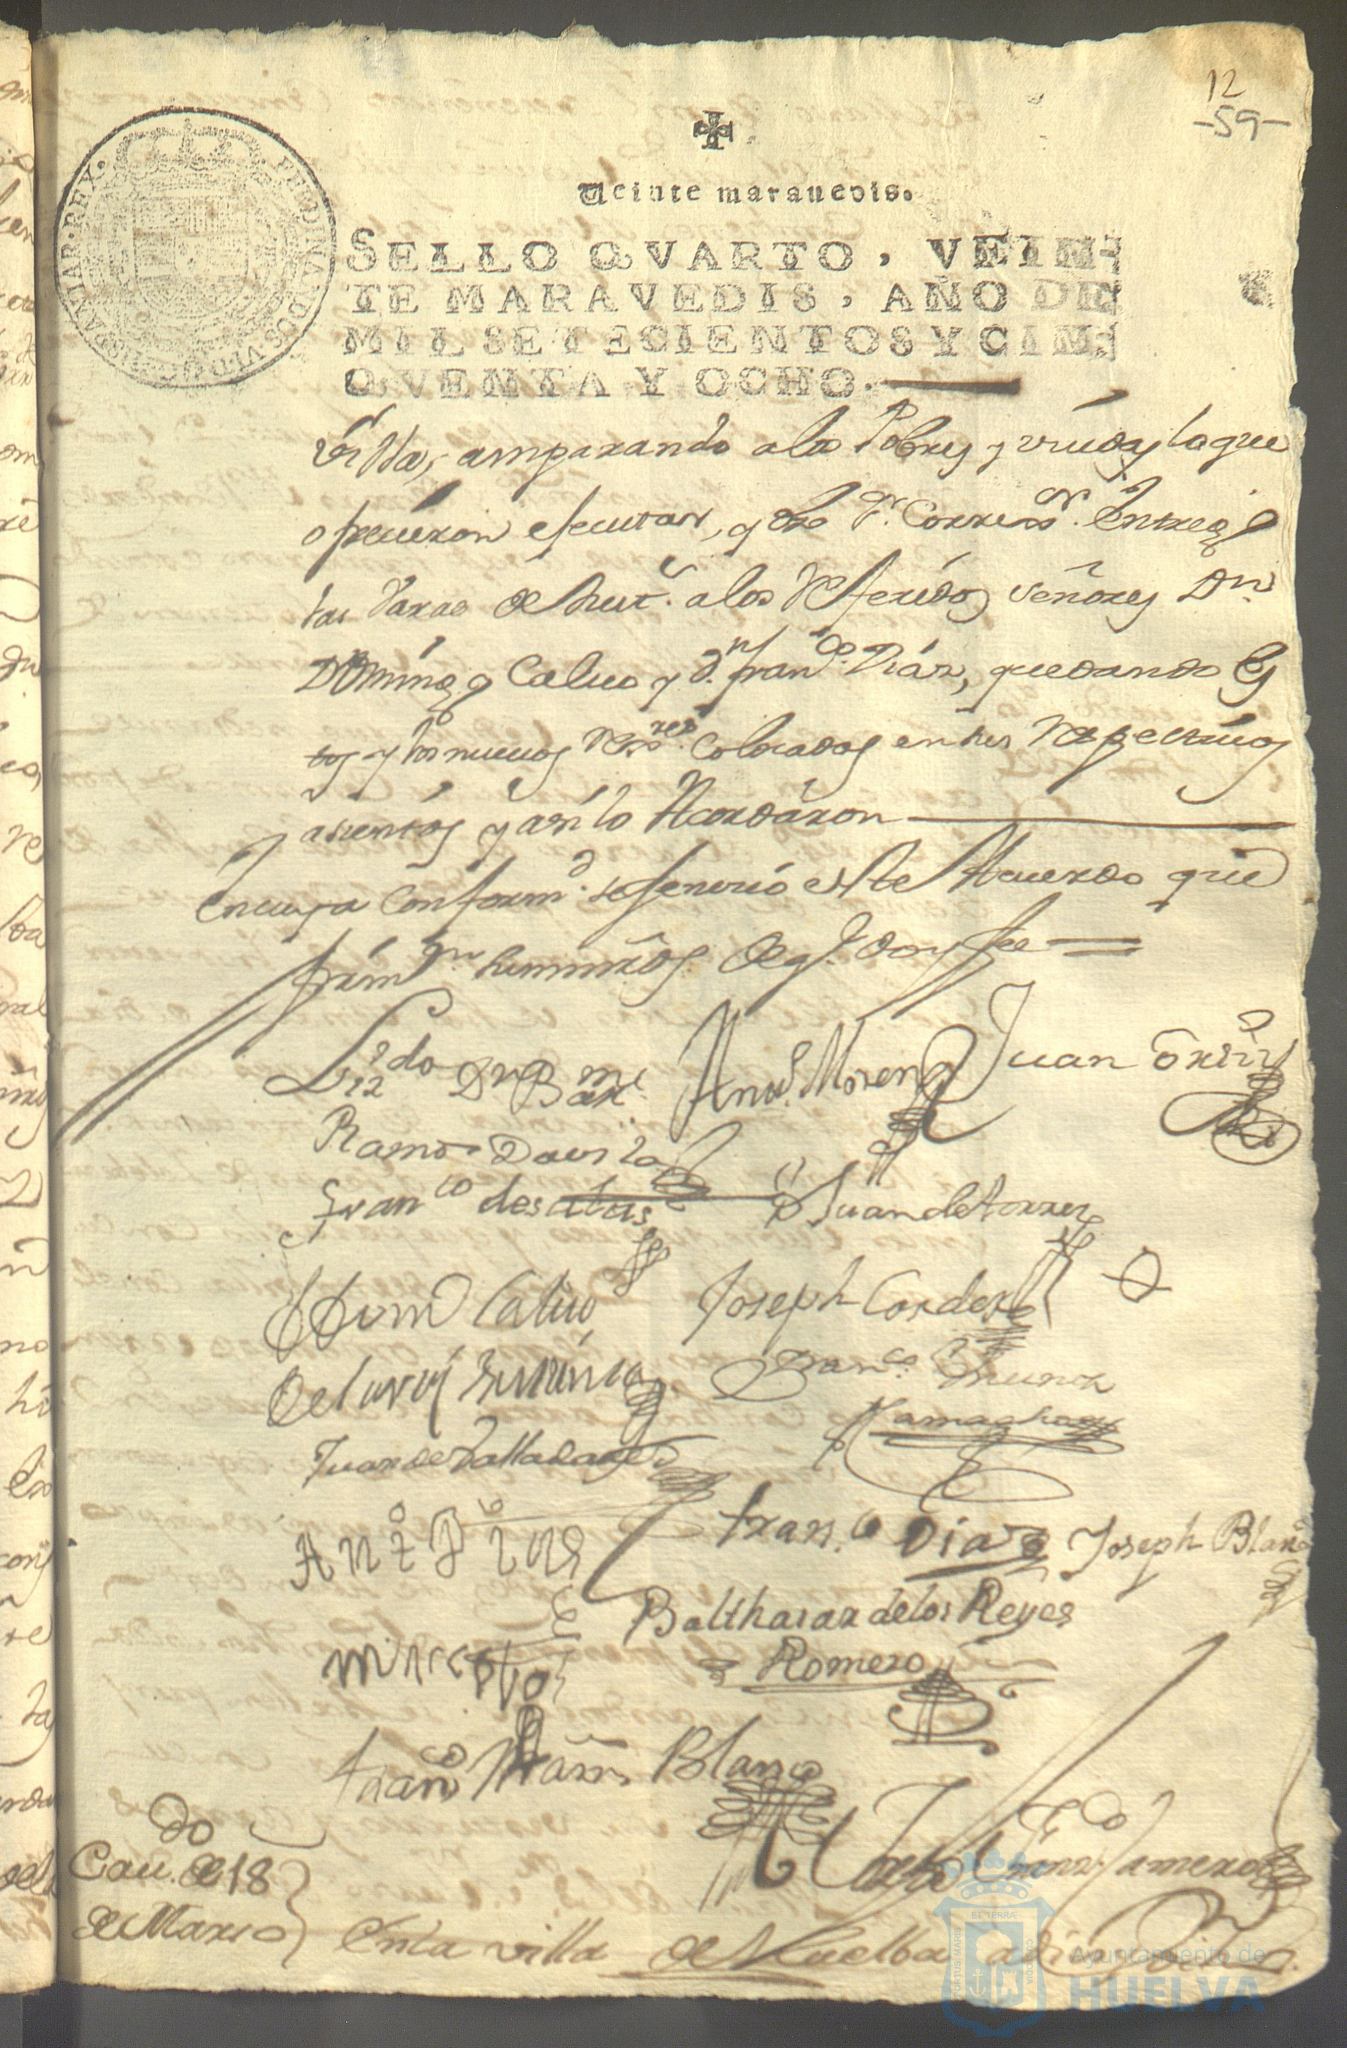 12
-59-
FERDINANDUS·VI·D·G·HISPANIAR·REX·
Veinte marauedis.
SELLO QVARTO, VEIN-
TE MARAVEDIS, AÑO DE
MIL SETECIENTOS Y CIN-
QVENTA Y OCHO.
Villa, amparando a los Pobres y viudas lo que
ofrecieron efecutar, y dho Sr. Corregor. Entrego
las Varas de Just.ª a los Referidos señores Dn.
Domingo Calvo y Dn. franco. Diaz, quedando Es
tos y los nuevos Rexres. Colocados en sus Respectivos
asientos y asi lo Acordaron
En cuya Conformd. se fenecio este Acuerdo que
firmn. sus mrds. de q. doy fee
Lizdo Dn Barme.
Ramos Davila
Ands. Moreno
Juan Ortiz
Franco de
Juan de Torres
Domo Calvo
Joseph Cordero
Franco. Munoz
Juan de Valladares
Franco Diaz
Joseph Blanco
Balthasar de los Reyes
Romero
Franco Marn. Blanco
Cavdo. de 18
de Marzo
En la villa de Huelba a diez
Ayuntamiento de
HUELVA